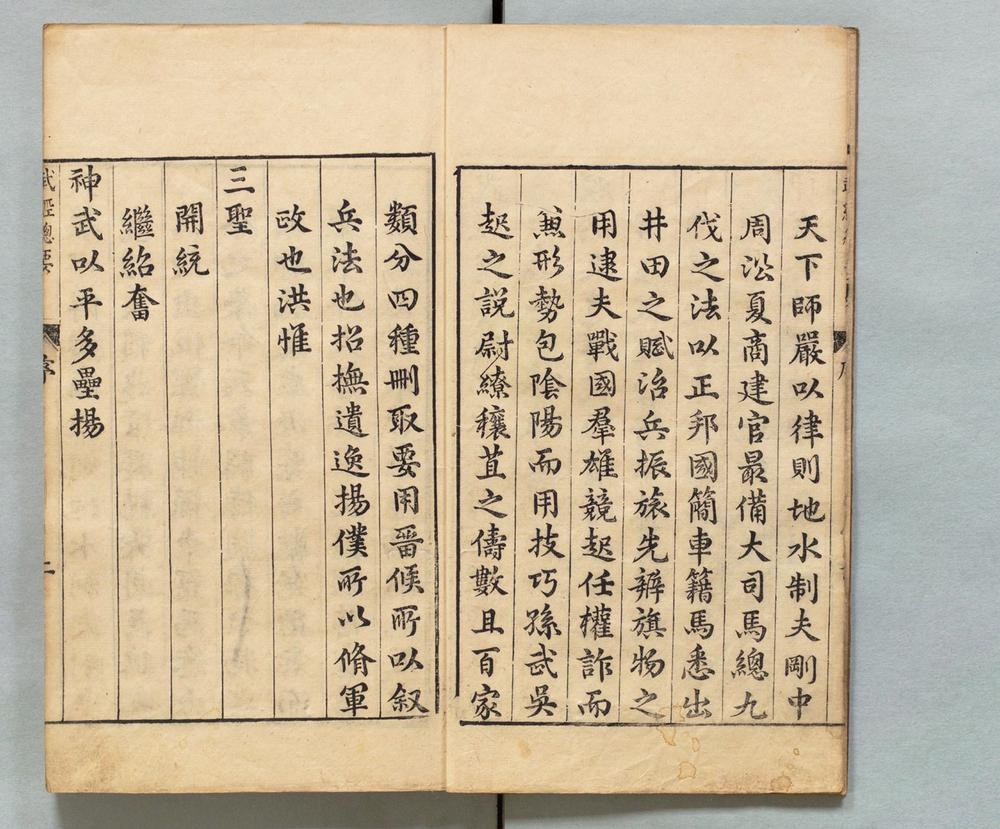 天下師嚴以律則地水制夫剛中
周㳂夏商建官最備大司馬總九
伐之法以正邦國簡車籍馬悉出
井田之賦治兵振旅先辨旗物之
用逮夫戰國羣雄競起任權詐而
兼形勢包陰陽而用技巧孫武吳
起之說尉繚穰苴之儔數且百家
類分四種刪取要用晉候所以叙
兵法也招撫遺逸揚僕所以脩軍
政也洪惟
三聖
開統
繼紹奮
神武以平多壘揚
武經總要
序
二